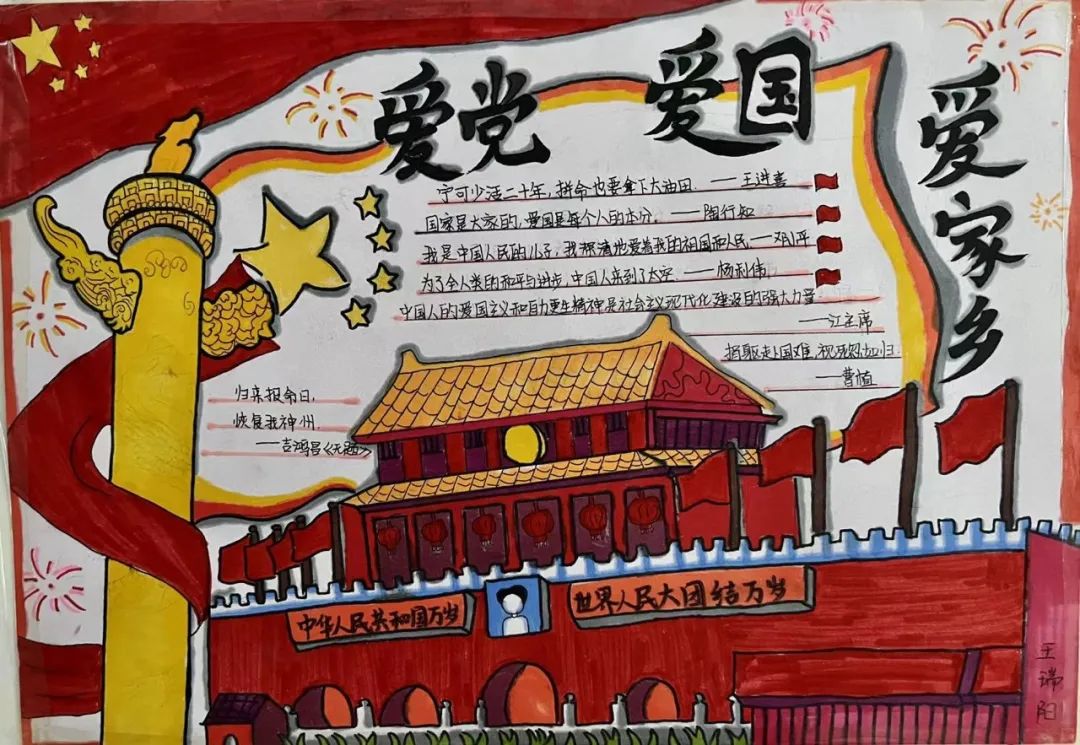 爱党 爱国
爱家乡
宁可少活二十年,拼命也要拿下大油田. ——王进喜
国家是大家的,爱国是每个人的本分。——陶行知
我是中国人民的儿子,我深情地爱着我的祖国和人民.——邓小平
为了全人类的和平与进步,中国人来到了太空 ——杨利伟
中国人的爱国主义和自力更生精神是社会主义现代化建设的强大力量
——江主席
捐躯赴国难,视死忽如归.
——曹植
归来报命日,
恢复我神州.
——吉鸿昌《无题》
中华人民共和国万岁
世界人民大团结万岁
王瑞阳